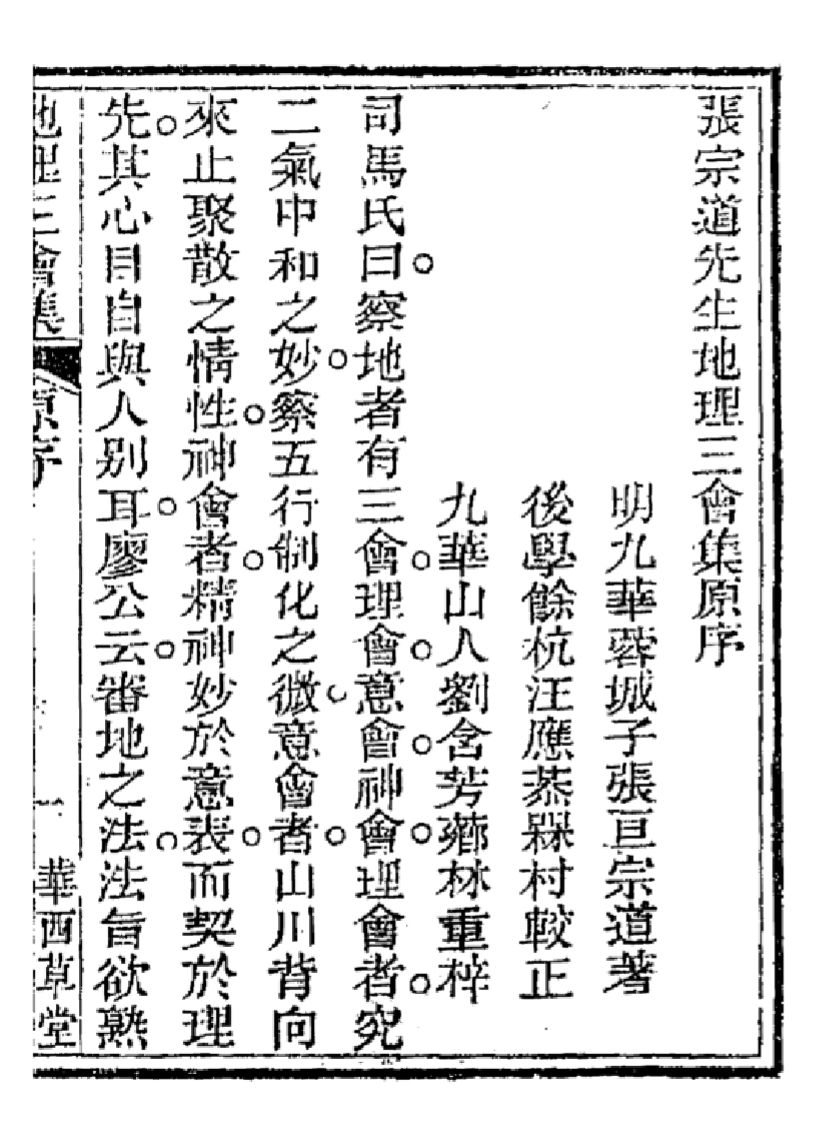 張宗道先生地理三會集原序
明九華蓉城子張亘宗道著
後學餘杭汪應恭槑村較正
九華山人劉含芳薌林重梓
司馬氏曰察地者有三會理會意會神會理會者究
二氣中和之妙察五行制化之微意會者山川背向
來止聚散之情性神會者精神妙於意表而契於理
先其心目自與人別耳廖公云審地之法法旨欲熟
地理三會集 原序 一 華西草堂